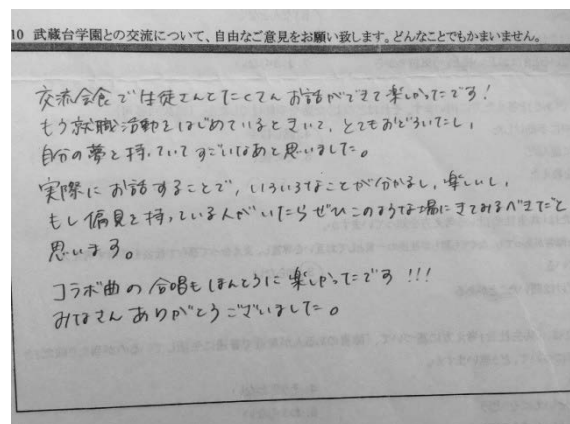 10 武蔵台学園との交流について、自由なご意見をお願い致します。どんなことでもかまいません。
交流会食で生徒さんとたくさんお話ができて楽しかったです！
もう就職活動をはじめているときいて、とてもおどろいたし、
自分の夢を持っていてすごいなあと思いました。
実際にお話することで、いろいろなことが分かるし、楽しいし、
もし偏見を持っている人がいたらぜひこのような場にきてみるべきだと
思います。
コラボ曲の合唱もほんとうに楽しかったです!!!
みなさんありがとうございました。